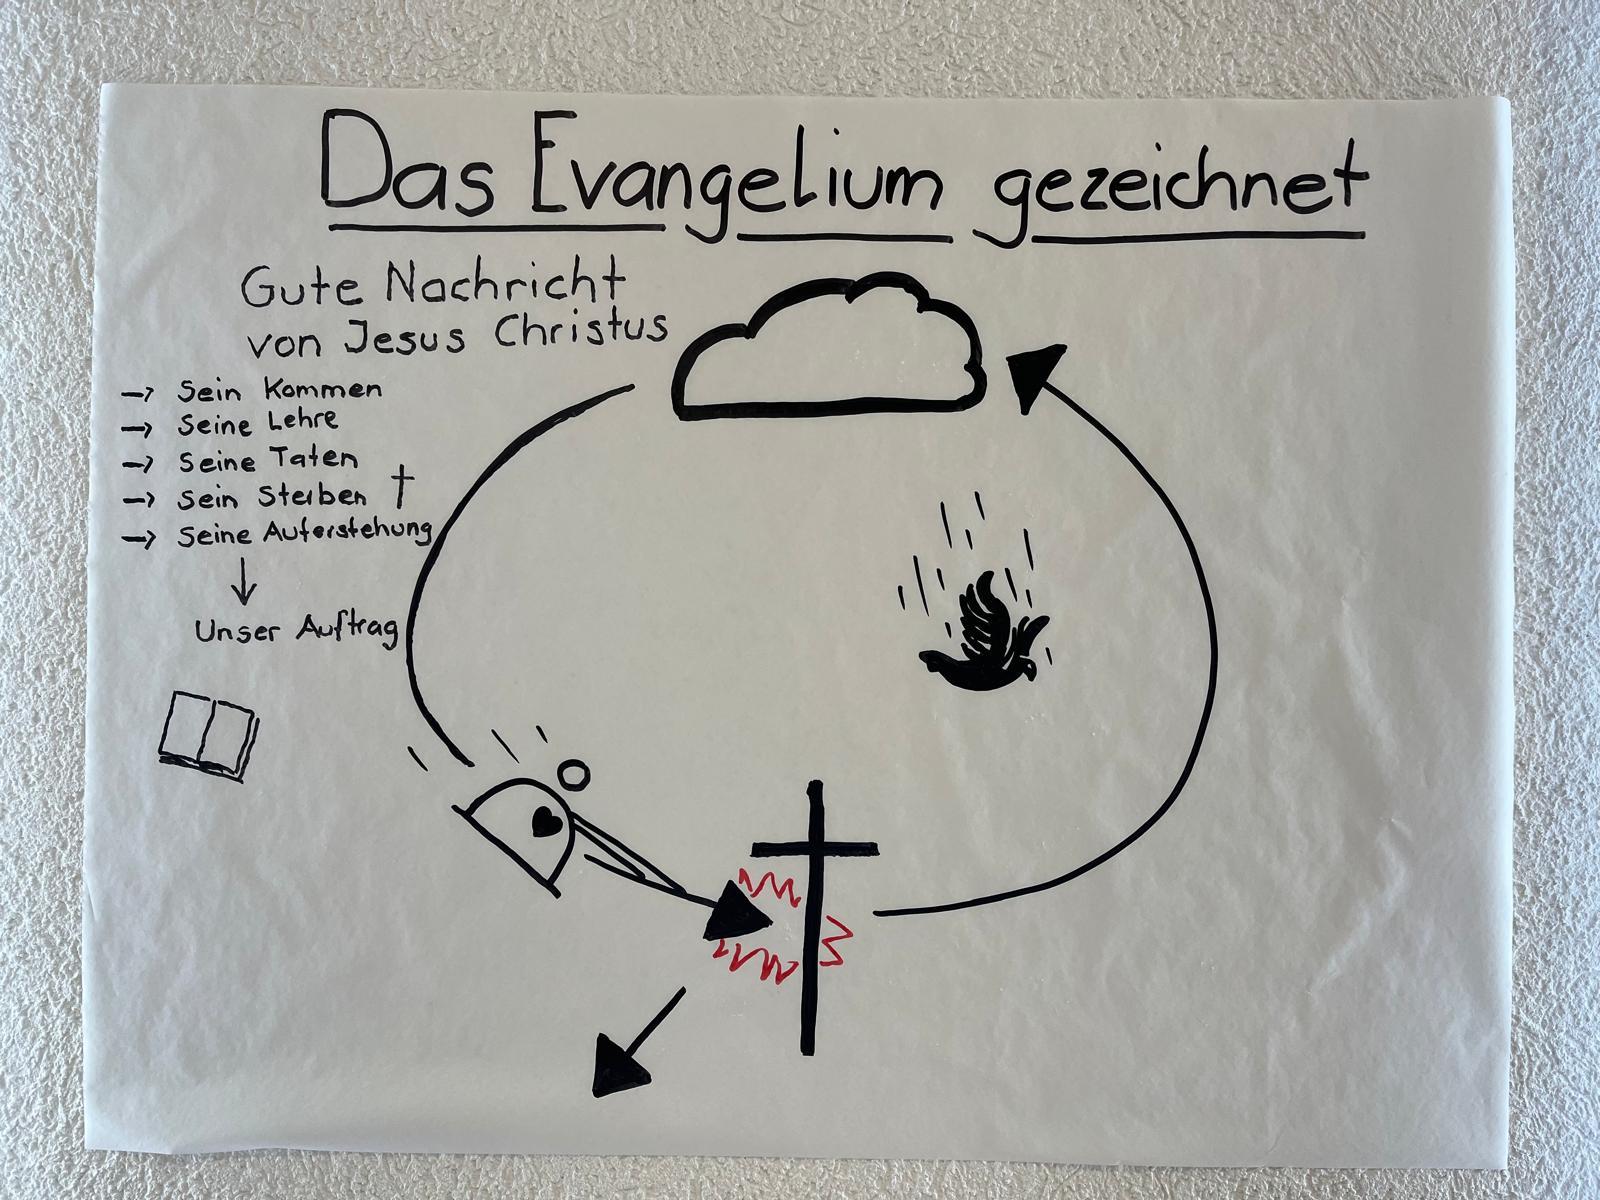 Das Evangelium gezeichnet
Gute Nachricht
von Jesus Christus
→ Sein Kommen
→ Seine Lehre
→ Seine Taten
→ Sein Sterben †
→ Seine Auferstehung
↓
Unser Auftrag